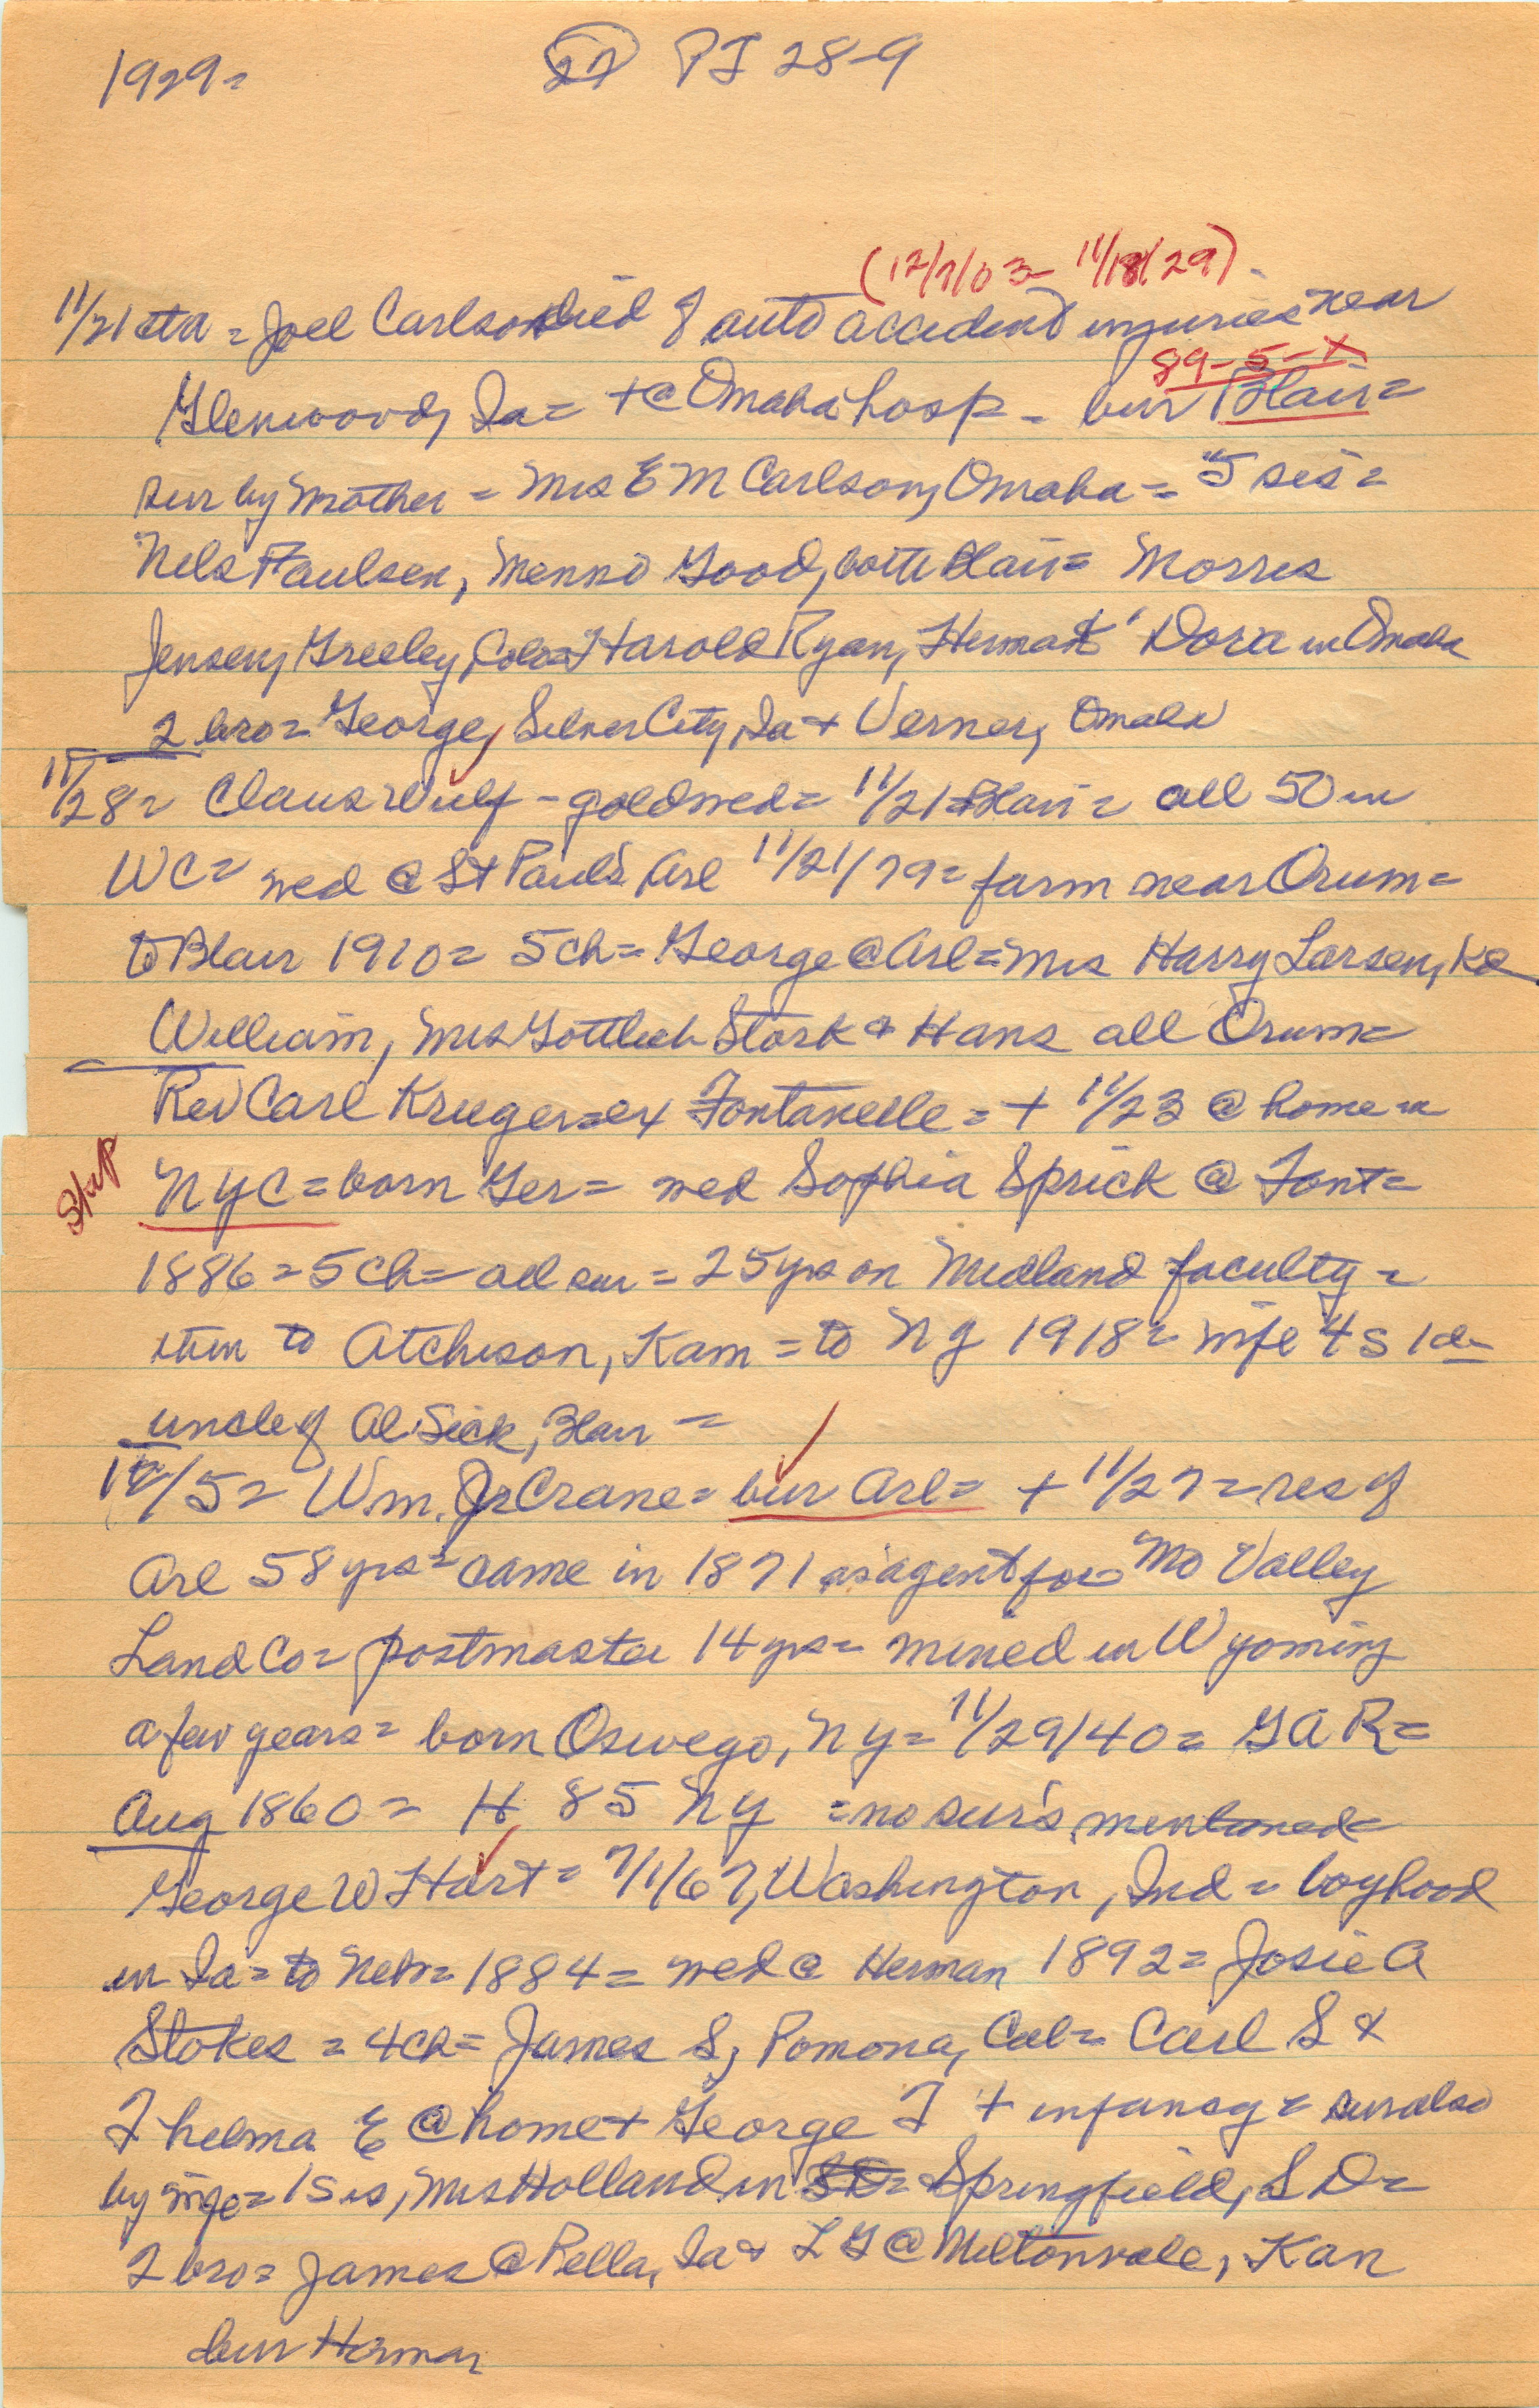 1929=
27 PJ 28-9
(12/7/03- 11/18/29)
11/21 = Joel Carlson died of auto accident injuries near
89-5-X
Glenwood, Ia= + @ Omaha hosp - bur Blair=
sur by mother = Mrs E M Carlson, Omaha = 5 sis =
Nels Paulsen, Menno Good, both Blair= Morris
Jensen, Greeley, Colo= Harold Ryan, Herman Dora in Omaha
2 bro= George, Silver City, Ia + Verner, Omaha
11/28= Claus Wulf - gold wed= 11/21=Blair= all 50 in
WC= wed @ St Paul's Arl 11/21/79= farm near Orum=
to Blair 1910= 5 ch= George @ Arl= Mrs Harry Larsen, Ke
William, Mrs Gottlieb Stork & Hans all Orum=
Rev Carl Kruger=ex Fontanelle= + 11/23 @ home in
NYC= born Ger= wed Sophia Sprick @ Font=
1886= 5 ch= all sur= 25 yrs on Midland faculty=
then to Atchison, Kam = to NY 1918= wife 4 s 1 da
uncle of Al Sick, Blair =
12/5= Wm. Jr Crane= bur Arl= + 11/27= res of
Arl 58 yrs= came in 1871 as agent for Mo Valley
Land Co= postmaster 14 yrs= mined in Wyoming
a few years= born Oswego, NY= 11/29/40= GAR=
Aug 1860= H 85 NY = no sur's mentioned=
George W Hart= 7/1/67, Washington, Ind= boyhood
in Ia= to Neb= 1884= wed @ Herman 1892= Josie A
Stokes = 4 ch= James S, Pomona, Cal= Carl S &
Thelma E @ home + George T + infancy= sur also
by wife= 1 sis, Mrs Holland in Springfield, SD=
2 bro= James @ Pella, Ia & L G @ Miltonvale, Kan
bur Herman